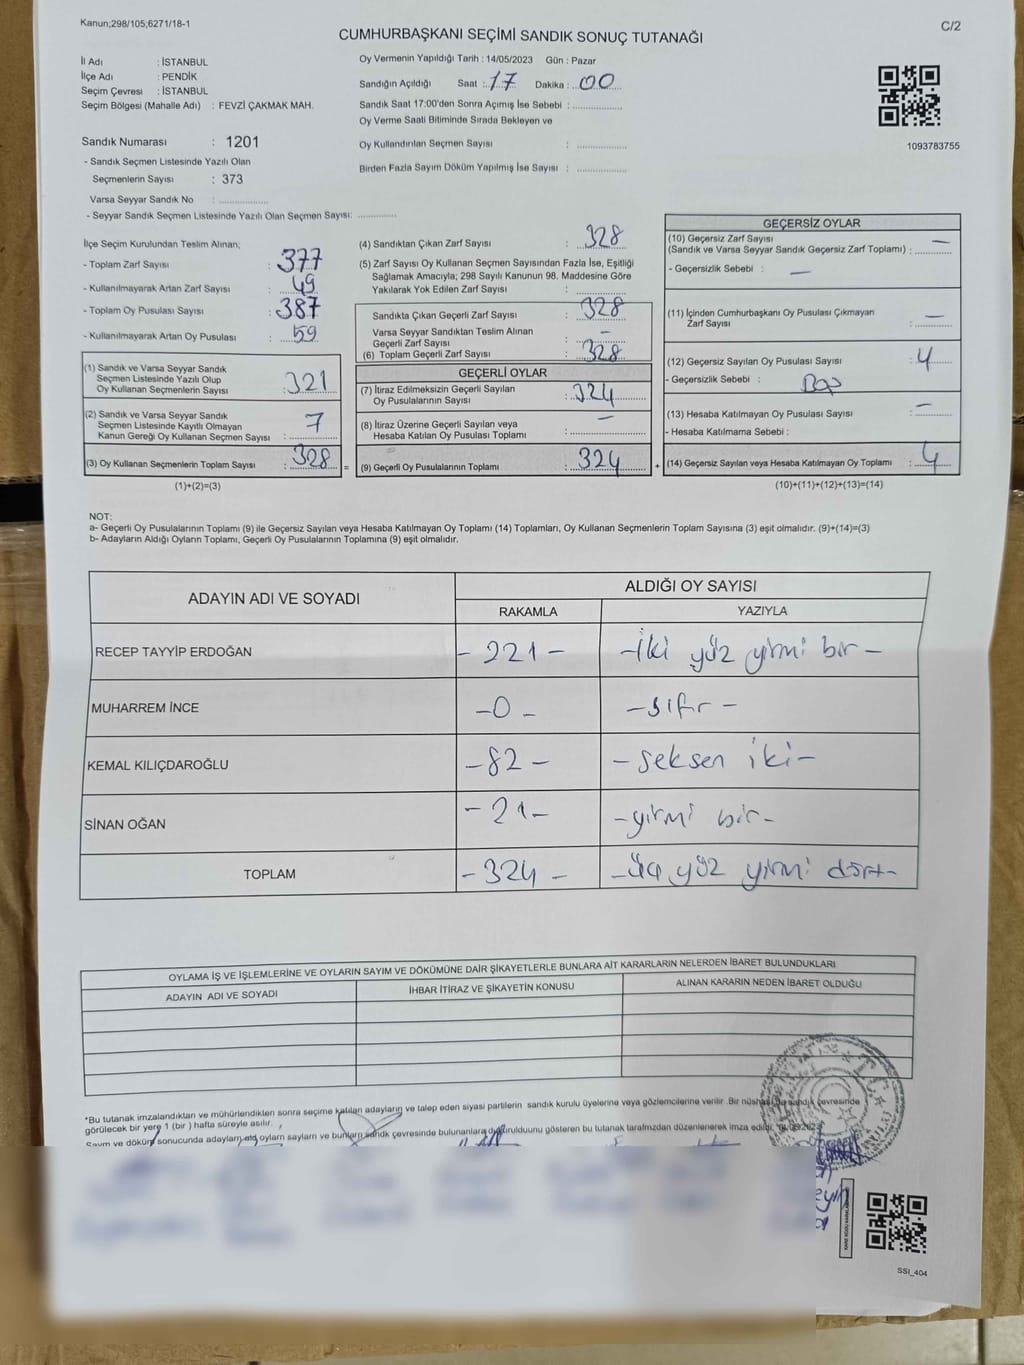 Kanun;298/105;6271/18-1
C/2
CUMHURBAŞKANI SEÇİMİ SANDIK SONUÇ TUTANAĞI
İl Adı : İSTANBUL
İlçe Adı : PENDİK
Seçim Çevresi : İSTANBUL
Seçim Bölgesi (Mahalle Adı) : FEVZİ ÇAKMAK MAH.
Sandık Numarası : 1201
- Sandık Seçmen Listesinde Yazılı Olan
Seçmenlerin Sayısı : 373
Varsa Seyyar Sandık No : ................
- Seyyar Sandık Seçmen Listesinde Yazılı Olan Seçmen Sayısı: ............
Oy Vermenin Yapıldığı Tarih : 14/05/2023 Gün : Pazar
Sandığın Açıldığı Saat : 17 Dakika : 00
Sandık Saat 17:00'den Sonra Açımış İse Sebebi : ................
Oy Verme Saati Bitiminde Sırada Bekleyen ve
Oy Kullandırılan Seçmen Sayısı : ................
Birden Fazla Sayım Döküm Yapılmış İse Sayısı : ................
1093783755
İlçe Seçim Kurulundan Teslim Alınan;
- Toplam Zarf Sayısı : 377
- Kullanılmayarak Artan Zarf Sayısı : 49
- Toplam Oy Pusulası Sayısı : 387
- Kullanılmayarak Artan Oy Pusulası : 59
(1) Sandık ve Varsa Seyyar Sandık
Seçmen Listesinde Yazılı Olup
Oy Kullanan Seçmenlerin Sayısı : 321
(2) Sandık ve Varsa Seyyar Sandık
Seçmen Listesinde Kayıtlı Olmayan
Kanun Gereği Oy Kullanan Seçmen Sayısı : 7
(3) Oy Kullanan Seçmenlerin Toplam Sayısı : 328
(1)+(2)=(3)
=
(4) Sandıktan Çıkan Zarf Sayısı : 328
(5) Zarf Sayısı Oy Kullanan Seçmen Sayısından Fazla İse, Eşitliği
Sağlamak Amacıyla; 298 Sayılı Kanunun 98. Maddesine Göre
Yakılarak Yok Edilen Zarf Sayısı : ................
Sandıkta Çıkan Geçerli Zarf Sayısı : 328
Varsa Seyyar Sandıktan Teslim Alınan
Geçerli Zarf Sayısı : -
(6) Toplam Geçerli Zarf Sayısı : 328
GEÇERLİ OYLAR
(7) İtiraz Edilmeksizin Geçerli Sayılan
Oy Pusulalarının Sayısı : 324
(8) İtiraz Üzerine Geçerli Sayılan veya
Hesaba Katılan Oy Pusulası Toplamı : -
(9) Geçerli Oy Pusulalarının Toplamı : 324
+
GEÇERSİZ OYLAR
(10) Geçersiz Zarf Sayısı
(Sandık ve Varsa Seyyar Sandık Geçersiz Zarf Toplamı) : -
- Geçersizlik Sebebi : -
(11) İçinden Cumhurbaşkanı Oy Pusulası Çıkmayan
Zarf Sayısı : -
(12) Geçersiz Sayılan Oy Pusulası Sayısı : 4
- Geçersizlik Sebebi :
(13) Hesaba Katılmayan Oy Pusulası Sayısı : -
- Hesaba Katılmama Sebebi :
(14) Geçersiz Sayılan veya Hesaba Katılmayan Oy Toplamı : 4
(10)+(11)+(12)+(13)=(14)
NOT:
a- Geçerli Oy Pusulalarının Toplamı (9) ile Geçersiz Sayılan veya Hesaba Katılmayan Oy Toplamı (14) Toplamları, Oy Kullanan Seçmenlerin Toplam Sayısına (3) eşit olmalıdır. (9)+(14)=(3)
b- Adayların Aldığı Oyların Toplamı, Geçerli Oy Pusulalarının Toplamına (9) eşit olmalıdır.
ADAYIN ADI VE SOYADI
ALDIĞI OY SAYISI
RAKAMLA YAZIYLA
RECEP TAYYİP ERDOĞAN - 221 - - İki yüz yirmi bir -
MUHARREM İNCE - 0 - - sıfır -
KEMAL KILIÇDAROĞLU - 82 - - seksen iki -
SİNAN OĞAN - 21 - - yirmi bir -
TOPLAM - 324 - - üç yüz yirmi dört -
OYLAMA İŞ VE İŞLEMLERİNE VE OYLARIN SAYIM VE DÖKÜMÜNE DAİR ŞİKAYETLERLE BUNLARA AİT KARARLARIN NELERDEN İBARET BULUNDUKLARI
ADAYIN ADI VE SOYADI İHBAR İTİRAZ VE ŞİKAYETİN KONUSU ALINAN KARARIN NEDEN İBARET OLDUĞU
*Bu tutanak imzalandıktan ve mühürlendikten sonra seçime katılan adayların ve talep eden siyasi partilerin sandık kurulu üyelerine veya gözlemcilerine verilir .Bir nüshası da sandık çevresinde
görülecek bir yere 1 (bir ) hafta süreyle asılır.
Sayım ve döküm sonucunda adayların oyların sayıların ve bunların sandık çevresinde bulunanlara duyurulduunu gösteren bu tutanak tarafımızdan düzenlenerek imza edildi.
SSI_404